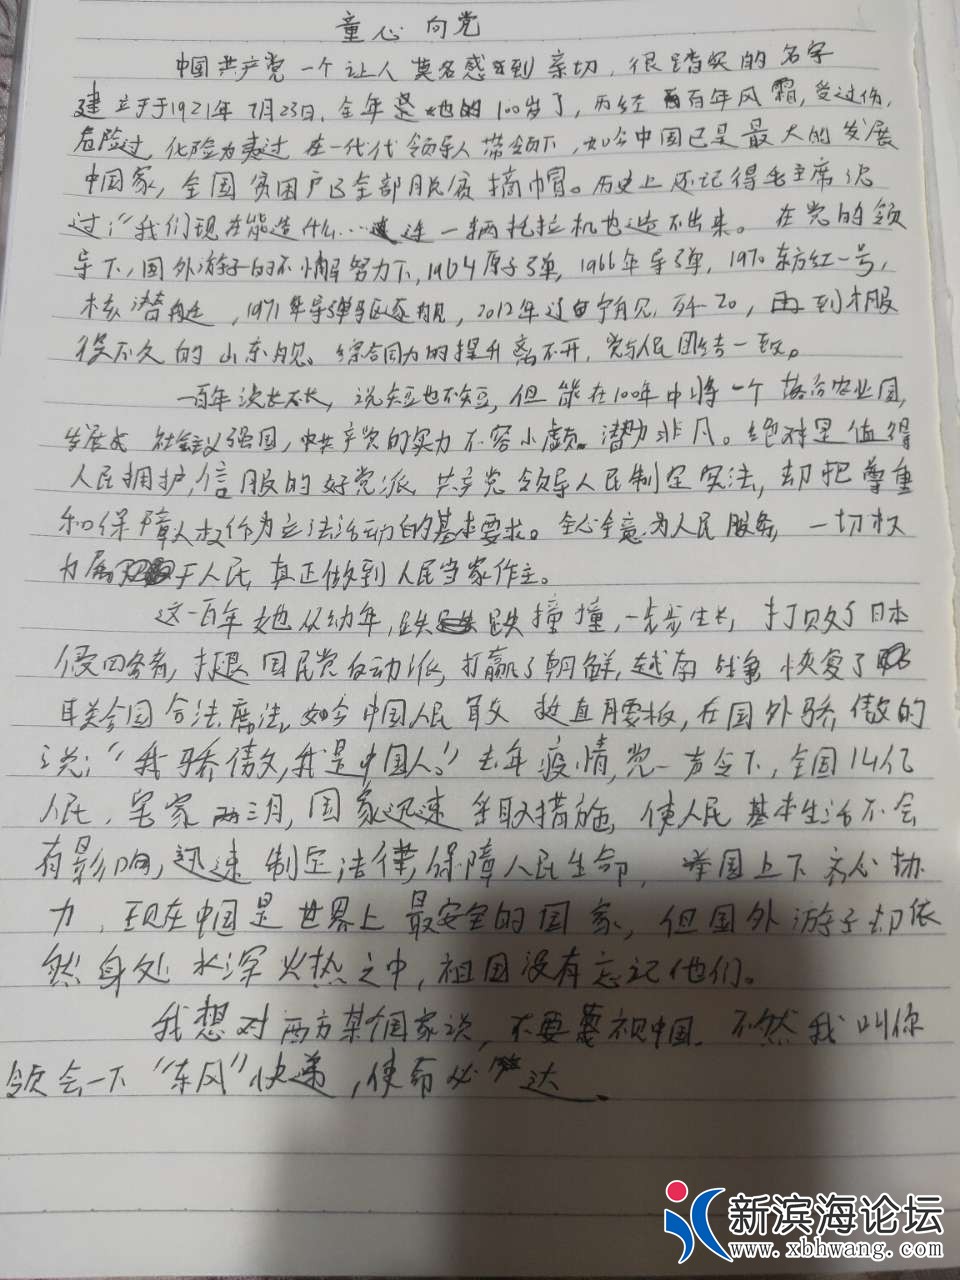 童心向党
中国共产党一个让人莫名感到亲切,很踏实的名字
建立于于1921年7月23日,今年是她的100岁了,历经百年风霜,受过伤,
危险过,化险为夷过在一代代领导人带领下,如今中国已是最大的发展
中国家,全国贫困户已全部脱贫摘帽。历史上还记得毛主席说
过:“我们现在能造什么……连一辆拖拉机也造不出来。在党的领
导下,国外游子的不懈努力下,1964原子弹,1966年导弹,1970东方红一号,
核潜艇,1971年导弹驱逐舰,2012年辽宁舰,歼20,再到服
役不久的山东舰。综合国力的提升离不开,党与人民团结一致。
一百年说长不长,说短也不短,但能在100年中将一个落后农业国,
发展成社会主义强国,中共产党的实力不容小觑。潜力非凡。绝对是值得
人民拥护,信服的好党派,共产党领导人民制定宪法,却把尊重
和保障人权作为立法活动的基本要求。全心全意为人民服务,一切权
力属于人民,真正做到人民当家作主。
这一百年她从幼年,跌跌撞撞,一步步生长,打败了日本
侵略者,打退国民党反动派,打赢了朝鲜,越南战争恢复了
联合国合法席法,如今中国人民敢挺直腰板,在国外骄傲的
说:“我骄傲,我是中国人。”去年疫情,党一声令下,全国14亿
人民,宅家两三月,国家迅速采取措施,使人民基本生活不会
有影响,迅速制定法律,保障人民生命,举国上下齐心协
力,现在中国是世界上最安全的国家,但国外游子却依
然身处水深火热之中,祖国没有忘记他们。
我想对西方某个国家说,不要蔑视中国,不然我叫你
领会一下“东风”快递,使命必达.
新滨海论坛
www.xbhwang.com